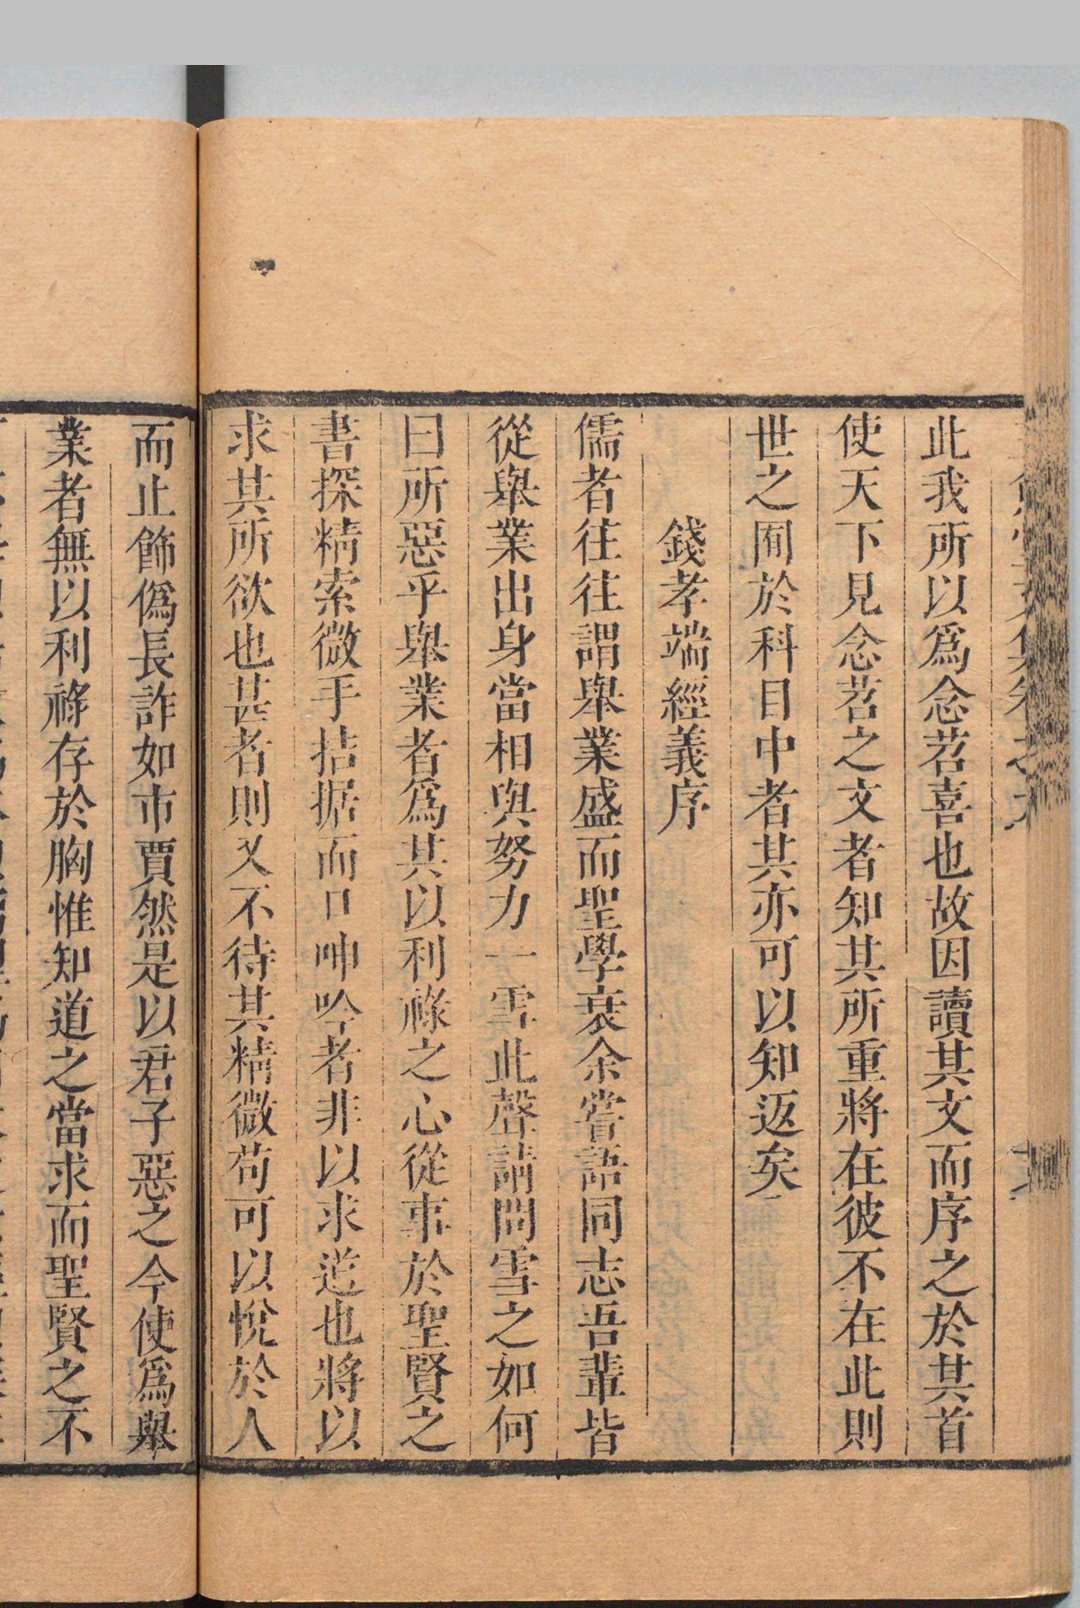 此我所以爲念苕喜也故因讀其文而序之於其首
使天下見念苕之文者知其所重將在彼不在此則
世之囿於科目中者其亦可以知返矣
錢孝端經義序
儒者往往謂舉業盛而聖學衰余嘗語同志吾輩皆
從舉業出身當相與努力一雪此聲請問雪之如何
曰所惡乎舉業者爲其以利祿之心從事於聖賢之
書探精索微手拮据而口呻吟者非以求道也將以
求其所欲也甚者則又不待其精微苟可以悅於人
而止飾僞長詐如市賈然是以君子惡之今使爲舉
業者無以利祿存於胸惟知道之當求而聖賢之不